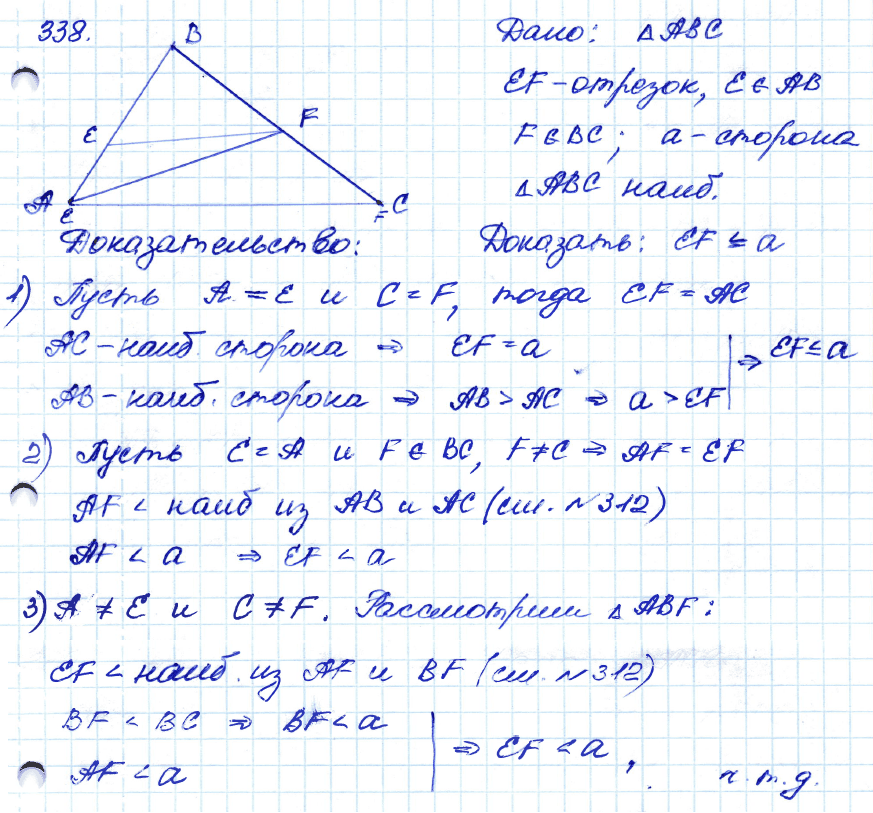 338.
B
E
F
A
E
F
C
Дано: △ABC
EF – отрезок, E ∈ AB
F ∈ BC; a – сторона
△ABC наиб.
Доказательство:
Доказать: EF ≤ a
1) Пусть A = E и C = F, тогда EF = AC
AC – наиб. сторона ⇒ EF = a
AB – наиб. сторона ⇒ AB > AC ⇒ a > EF
⇒ EF ≤ a
2) Пусть E = A и F ∈ BC, F ≠ C ⇒ AF = EF
AF < наиб из AB и AC (см. №312)
AF < a ⇒ EF < a
3) A ≠ E и C ≠ F. Рассмотрим △ABF:
EF < наиб. из AF и BF (см. №312)
BF < BC ⇒ BF < a
AF < a
⇒ EF < a,
ч.т.д.